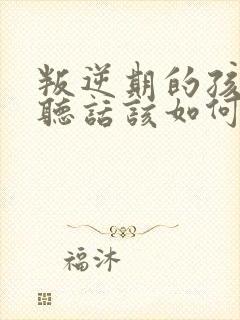 叛逆期的孩
聽話該如何
福沐